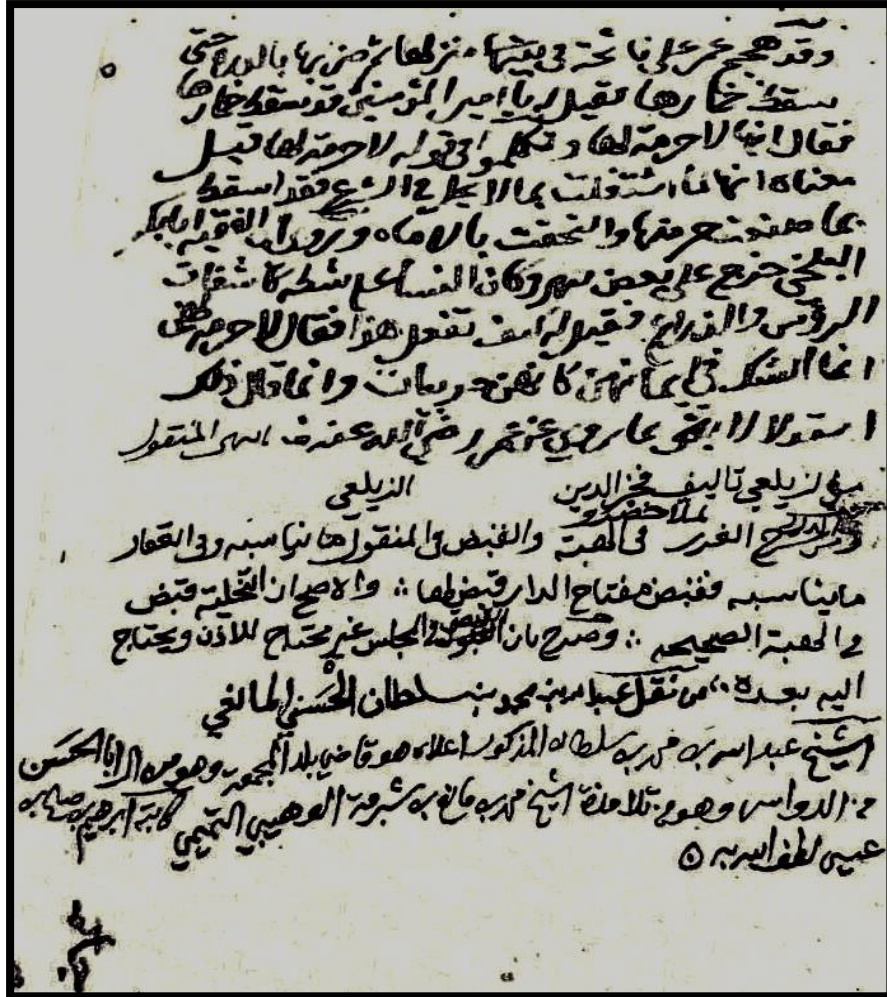 وقد هجم عمر على نائحة في بيتها منزلها ثم ضربها بالدرة حتى
سقط خمارها فقيل له يا امير المؤمنين قد سقط خمارها
فقال انها لا حرمة لها وتكلموا في قوله لا حرمة لها قيل
معناه انها لما اشتغلت بما لا يحل في الشرع فقد اسقطت
بما صنعت حرمتها والتحقت بالاماء وروي ان الفقيه ابا بكر
البلخي خرج على بعض نهر وكان النساء على شطه كاشفات
الرؤس والذراع فقيل له كيف تفعل هذا فقال لا حرمة لهن
انما الشك في ايمانهن كانهن حربيات وانما قال ذلك
استدلالا بما روي عن عمر رضي الله عنه انتهى المنقول
من الزيلعي تاليف فخر الدين الزيلعي
الدرر شرح الغرر لملا خسرو في الهبة والقبض في المنقول ما يناسبه وفي العقار
ما يناسبه فقبض مفتاح الدار قبض لها والاصح ان التخلية قبض
في الهبة الصحيحه وصرح بان القبض في المجلس غير محتاج للاذن ويحتاج
اليه بعده من نقل عبد الله بن محمد بن سلطان الحسني المالغي
الشيخ عبد الله بن محمد بن سلطان المذكور اعلاه هو قاضي بلد المجمعة وهو من ال ابا الحسن
من الدواسر وهو من تلامذة الشيخ محمد بن مانع بن شبرمة الوهيبي التميمي كاتبه ابراهيم بن صالح بن
عيسى لطف الله به